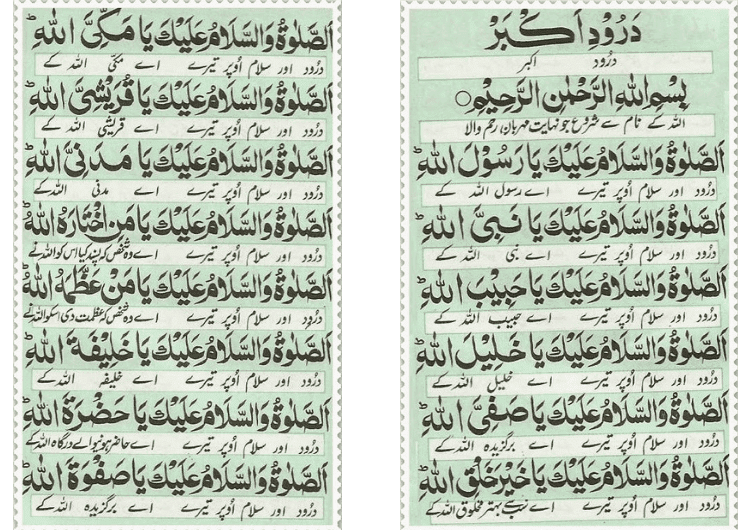 دَرُودِ اَکْبَرْ
درُود اکبر
بِسْمِ اللهِ الرَّحْمٰنِ الرَّحِيْمِ○
اللہ کے نام سے شرُوع جو نہایت مہربان، رحم والا
اَلصَّلٰوةُ وَالسَّلَامُ عَلَيْكَ يَا رَسُوْلَ اللهِ ط
درُود اور سلام اُوپر تیرے اے رسول اللہ کے
اَلصَّلٰوةُ وَالسَّلَامُ عَلَيْكَ يَا نَبِيَّ اللهِ ط
درُود اور سلام اُوپر تیرے اے نبی اللہ کے
اَلصَّلٰوةُ وَالسَّلَامُ عَلَيْكَ يَا حَبِيْبَ اللهِ ط
درُود اور سلام اُوپر تیرے اے حبیب اللہ کے
اَلصَّلٰوةُ وَالسَّلَامُ عَلَيْكَ يَا خَلِيْلَ اللهِ ط
درُود اور سلام اُوپر تیرے اے خلیل اللہ کے
اَلصَّلٰوةُ وَالسَّلَامُ عَلَيْكَ يَا صَفِيَّ اللهِ ط
درُود اور سلام اُوپر تیرے اے برگزیدہ اللہ کے
اَلصَّلٰوةُ وَالسَّلَامُ عَلَيْكَ يَا خَيْرَ خَلْقِ اللهِ ط
درُود اور سلام اُوپر تیرے اے سب سے بہتر مخلوق اللہ کے
اَلصَّلٰوةُ وَالسَّلَامُ عَلَيْكَ يَا مَكِّيَّ اللهِ ط
درُود اور سلام اُوپر تیرے اے مکّی اللہ کے
اَلصَّلٰوةُ وَالسَّلَامُ عَلَيْكَ يَا قُرَيْشِيَّ اللهِ ط
درُود اور سلام اُوپر تیرے اے قریشی اللہ کے
اَلصَّلٰوةُ وَالسَّلَامُ عَلَيْكَ يَا مَدَنِيَّ اللهِ ط
درُود اور سلام اُوپر تیرے اے مدنی اللہ کے
اَلصَّلٰوةُ وَالسَّلَامُ عَلَيْكَ يَا مَنِ اخْتَارَهُ اللهُ ط
درُود اور سلام اُوپر تیرے اے وہ شخص کہ پسند کیا اس کو اللہ نے
اَلصَّلٰوةُ وَالسَّلَامُ عَلَيْكَ يَا مَنْ عَظَّمَهُ اللهُ ط
درُود اور سلام اُوپر تیرے اے وہ شخص کہ عظمت دی اسکو اللہ نے
اَلصَّلٰوةُ وَالسَّلَامُ عَلَيْكَ يَا خَلِيْفَةَ اللهِ ط
درُود اور سلام اُوپر تیرے اے خلیفہ اللہ کے
اَلصَّلٰوةُ وَالسَّلَامُ عَلَيْكَ يَا حَضْرَةَ اللهِ ط
درُود اور سلام اُوپر تیرے اے حاضر ہونیوالے درگاہ اللہ کے
اَلصَّلٰوةُ وَالسَّلَامُ عَلَيْكَ يَا صَفْوَةَ اللهِ ط
درُود اور سلام اُوپر تیرے اے برگزیدہ اللہ کے